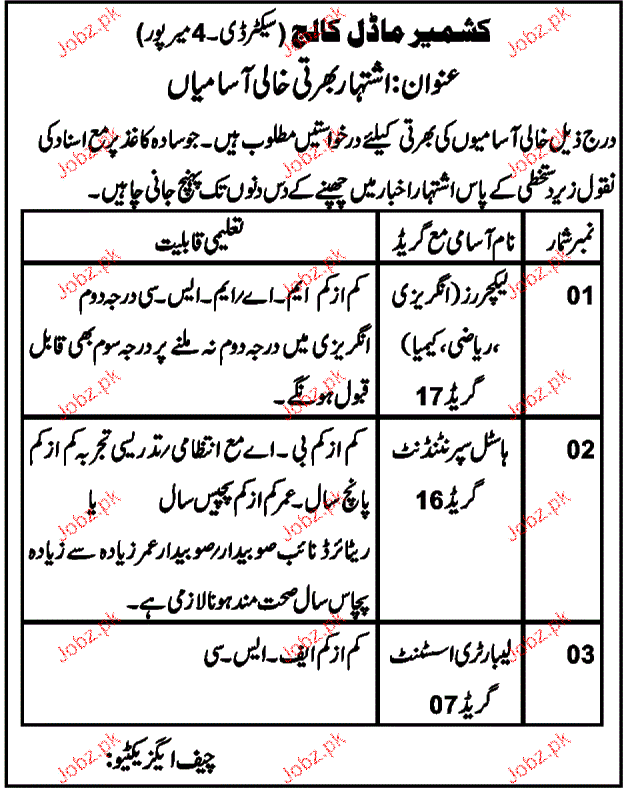 کشمیر ماڈل کالج (سیکٹر ڈی۔4 میرپور)
عنوان: اشتہار بھرتی خالی آسامیاں
درج ذیل خالی آسامیوں کی بھرتی کیلئے درخواستیں مطلوب ہیں۔ جو سادہ کاغذ پر مع اسناد کی
نقول زیر دستخطی کے پاس اشتہار اخبار میں چھپنے کے دس دنوں تک پہنچ جانی چاہیں۔
نمبر شمار نام آسامی مع گریڈ تعلیمی قابلیت
01 لیکچررز (انگریزی
، ریاضی، کیمیا)
گریڈ 17
کم از کم ایم۔اے/ایم۔ایس۔سی درجہ دوم
انگریزی میں درجہ دوم نہ ملنے پر درجہ سوم بھی قابل
قبول ہونگے۔
02 ہاسٹل سپرنٹنڈنٹ
گریڈ 16
کم از کم بی۔اے مع انتظامی/تدریسی تجربہ کم از کم
پانچ سال۔ عمر کم از کم پچیس سال یا
ریٹائرڈ نائب صوبیدار/صوبیدار عمر زیادہ سے زیادہ
پچاس سال صحت مند ہونا لازمی ہے۔
03 لیبارٹری اسسٹنٹ
گریڈ 07
کم از کم ایف۔ایس۔سی
چیف ایگزیکٹیو:
Jobz.pk